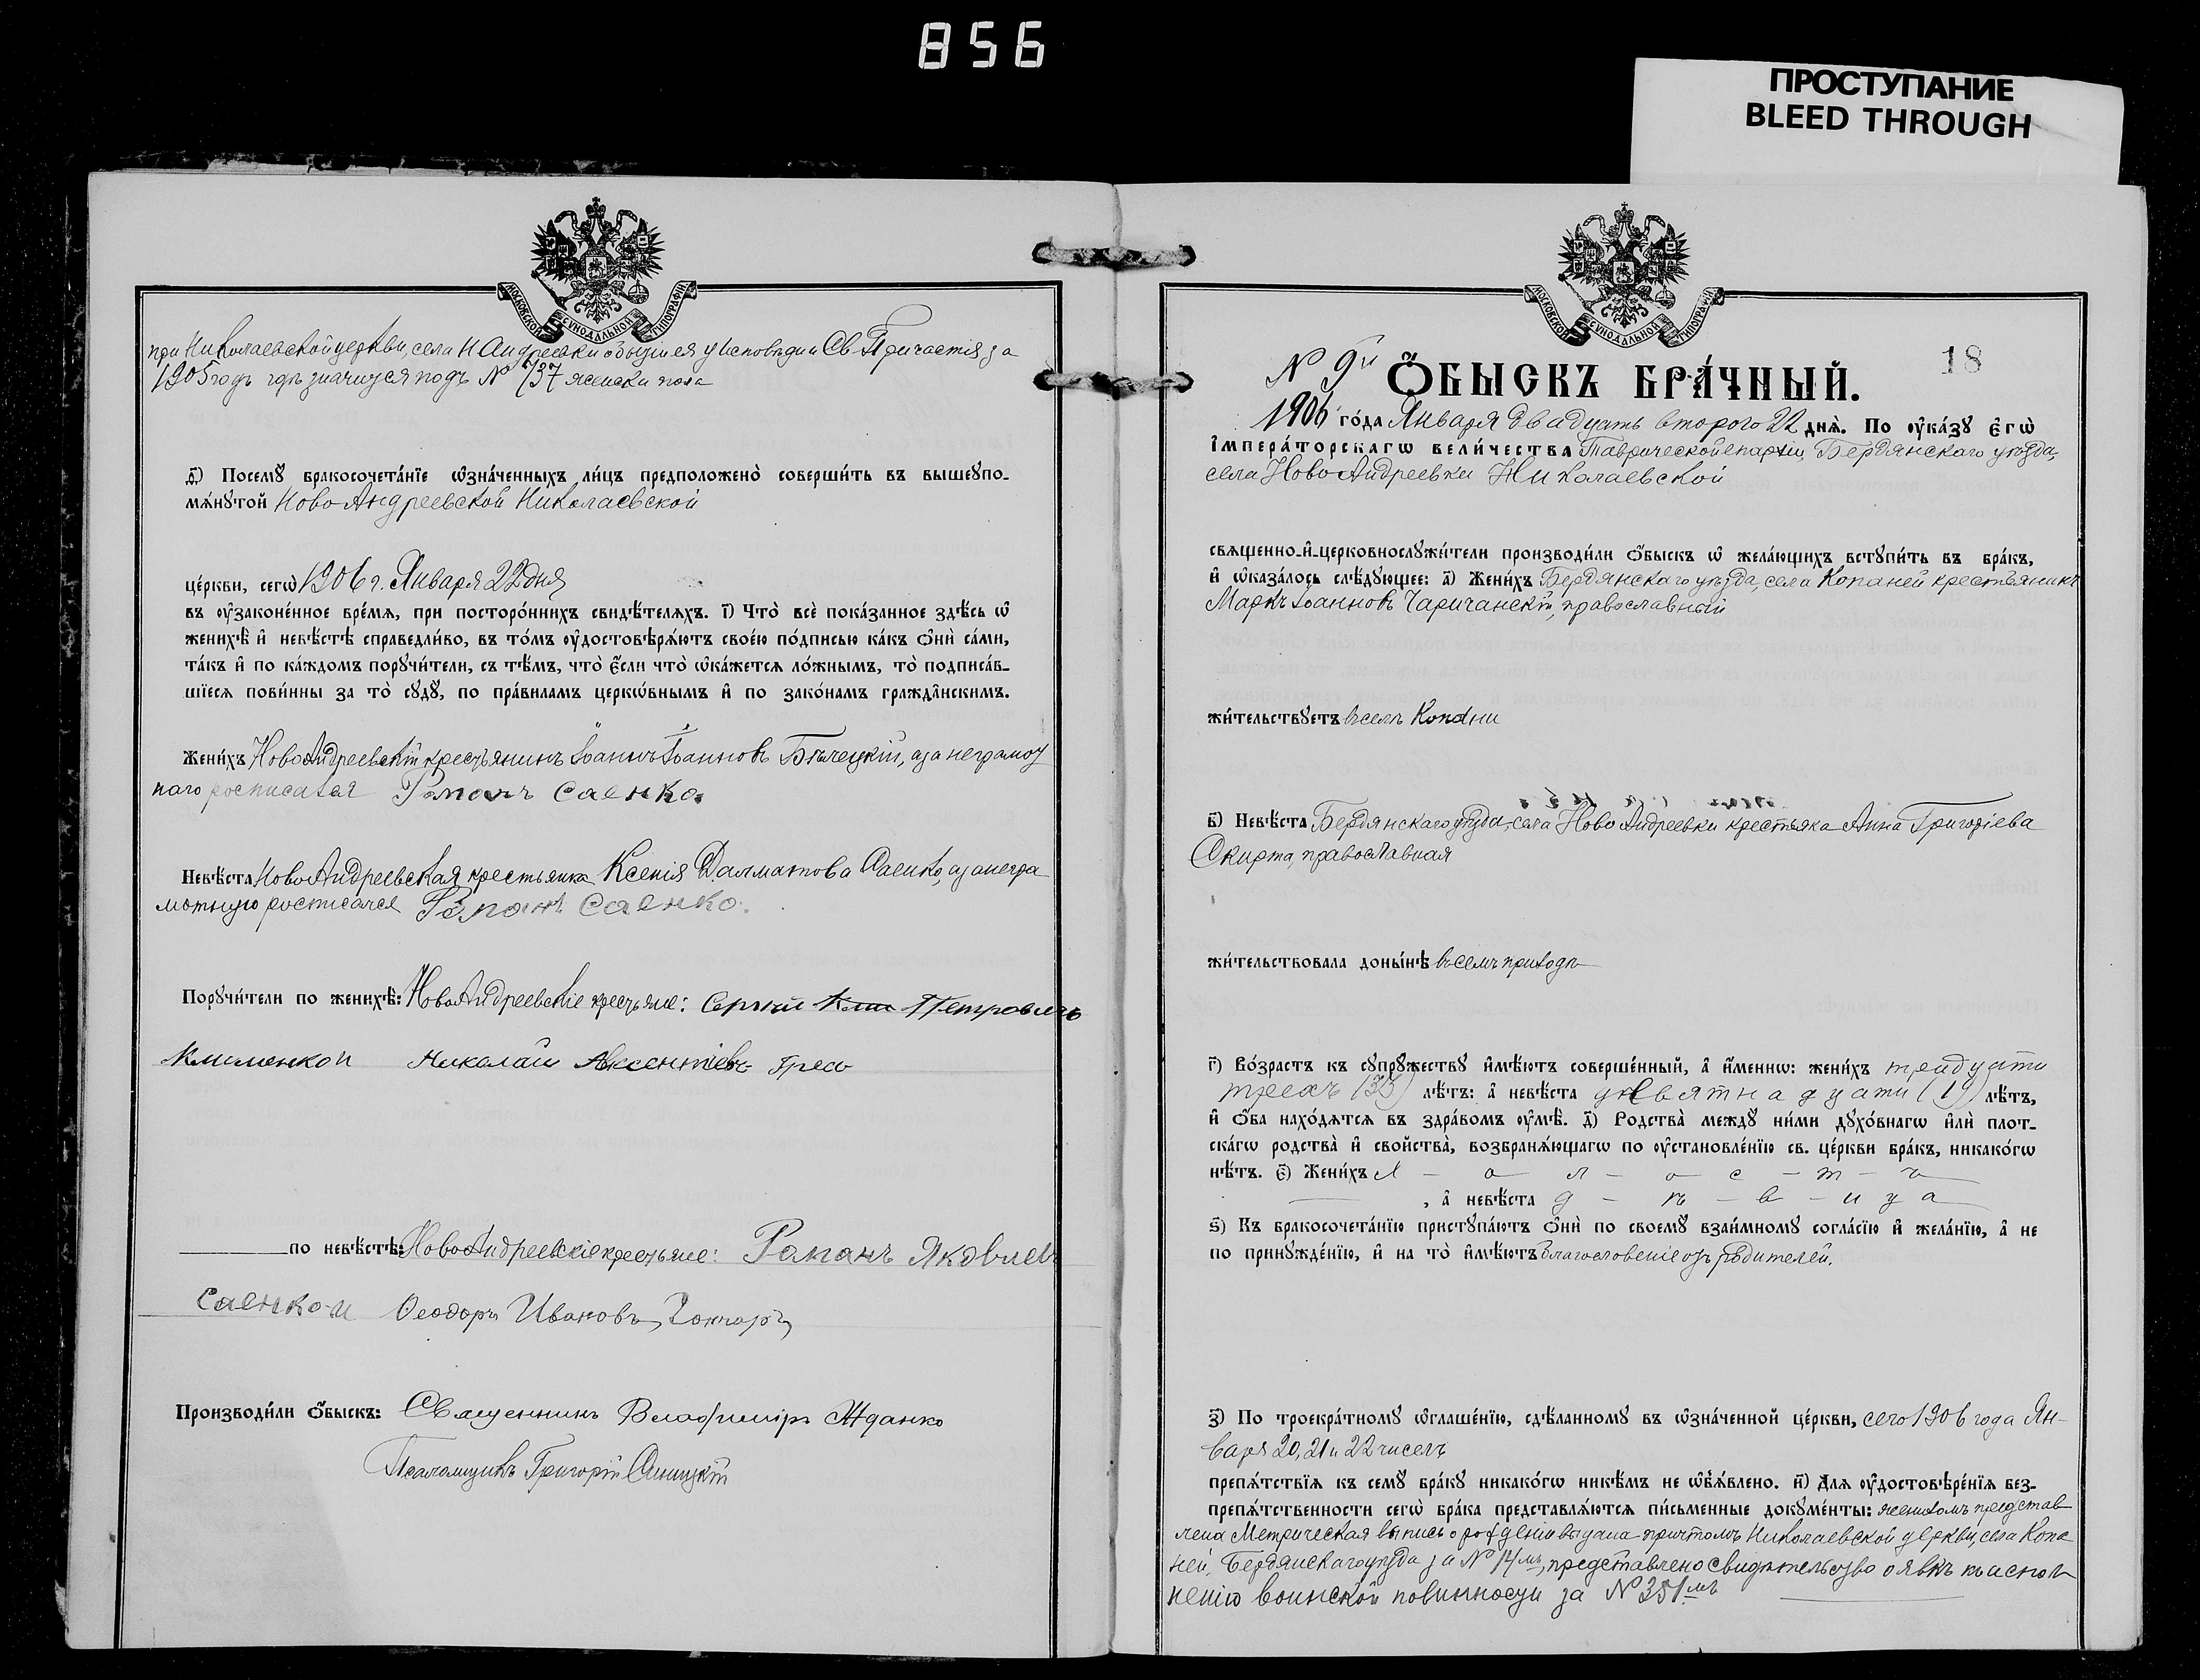 856
ПРОСТУПАНИЕ
BLEED THROUGH
МОСКОВСКОЙ СѴНОДАЛЬНОЙ ТИПОГРАФІИ
при Николаевской церкви, села Н Андреевки бывшiея у исповѣди и Св. Причастія за
1905 годъ гдѣ значится подъ № 137 женска пола
д҃) Посемꙋ бракосочета́нїе ѡ҆зна́ченныхъ ли́цъ предположено̀ соверши́ть въ вышеꙋпо-
мѧ́нꙋтой Ново Андреевской Николаевской
це́ркви, сегѡ̀ 1906 г. Января 22 дня
въ ᲂу҆законе́нное вре́мѧ, при посторо́ннихъ свидѣ́телѧхъ. і҃) Что̀ всѐ пока́занное здѣ́сь ѡ҆
женихѣ̀ и҆ невѣ́стѣ справедли́во, въ то́мъ ᲂу҆достовѣрѧ́ютъ свое́ю по́дписью ка́къ ѻ҆нѝ са́ми,
та́къ и҆ по ка́ждомъ порꙋчи́тели, съ тѣ́мъ, что̀ є҆́сли что̀ ѡ҆ка́жетсѧ ло́жнымъ, то̀ подписа́в-
шїесѧ пови́нны за то̀ сꙋдꙋ̀, по пра́виламъ церкѡ́внымъ и҆ по зако́намъ гражда́нскимъ.
Жени́хъ Ново Андреевскій крестьянинъ Іоаннъ Іоанновъ Бѣлецкій, а за неграмот
наго росписался Романъ Саенко.
Невѣ́ста Ново Андреевская крестьянка Ксенія Далматова Саенко, а за негра
мотную росписался Романъ Саенко.
Порꙋчи́тели по женихѣ̀: Ново Андреевскіе крестьяне: Сергий Кли Петровичъ
Клименко и Николай Авксентіевъ Гресь
по невѣ́стѣ: Ново Андреевскіе крестьяне: Раманъ Яковлевъ
Саенко и Ѳеодоръ Ивановъ Гончаръ
Производи́ли ѻ҆́быскъ: Священникъ Владиміръ Жданко
Псаломщикъ Григорій Синицкій
МОСКОВСКОЙ СѴНОДАЛЬНОЙ ТИПОГРАФІИ
18
№ 9й ѺБЫСКЪ БРА́ЧНЫЙ.
1906 го́да Января двадцать второго 22 днѧ̀. По ᲂу҆ка́зꙋ є҆гѡ̀
і҆мпера́торскагѡ вели́чества Таврической епархіи, Бердянскаго уѣзда,
села Ново Андреевки Николаевской
свѧщенно-и҆-церковнослꙋжи́тели производи́ли ѻ҆́быскъ ѡ҆ жела́ющихъ встꙋпи́ть въ бра́къ,
и҆ ѡ҆каза́лось слѣ́дꙋющее: а҃) Жени́хъ Бердянскаго уѣзда, села Копаней крестьянинъ
Маркъ Іоанновъ Чаричанскій, православный
жи́тельствꙋетъ въ селѣ Копани
в҃) Невѣ́ста Бердянскаго уѣзда, села Ново Андреевки крестьяка Анна Григоріева
Скирта, православная
жи́тельствовала доны́нѣ въ семъ приходѣ
г҃) Во́зрастъ къ сꙋпрꙋ́жествꙋ и҆мѣ́ютъ соверше́нный, а҆ и҆́меннѡ: жени́хъ тридцати
трехъ (33) лѣ́тъ: а҆ невѣ́ста девятнадцати (19) лѣ́тъ,
и҆ ѻ҆́ба нахо́дѧтсѧ въ здра́вомъ ᲂу҆мѣ̀. д҃) Родства̀ междꙋ̀ ни́ми дꙋхо́внагѡ и҆лѝ плот-
ска́гѡ родства̀ и҆ свойства̀, возбранѧ́ющагѡ по ᲂу҆становле́нїю св. це́ркви бра́къ, никако́гѡ
нѣ́тъ. є҃) Жени́хъ х - о - л - о - с - т - ъ
, а҆ невѣ́ста д - ѣ - в - и ц а
ѕ҃) Къ бракосочета́нїю пристꙋпа́ютъ ѻ҆нѝ по своемꙋ̀ взаи́мномꙋ согла́сїю и҆ жела́нїю, а҆ не
по принꙋжде́нїю, и҆ на то̀ и҆мѣ́ютъ благословеніе отъ родителей.
з҃) По троекра́тномꙋ ѡ҆глаше́нїю, сдѣ́ланномꙋ въ ѡ҆зна́ченной це́ркви, сего 1906 года Ян-
варя 20, 21 и 22 чиселъ
препѧ́тствїѧ къ семꙋ̀ бра́кꙋ никако́гѡ никѣ́мъ не ѡ҆б̾ѧ́влено. и҃) Длѧ ᲂу҆достовѣре́нїѧ без-
препѧ́тственности сегѡ̀ бра́ка представлѧ́ютсѧ пи́сьменные докꙋме́нты: женихомъ представ
лена Метрическая выпись о рожденіи выдана причтомъ Николаевской церкви, села Копа
ней, Бердянскаго уѣзда за № 14мъ, представлено свидѣтельство о явкѣ къ испол
ненію воинской повинности за № 351мъ